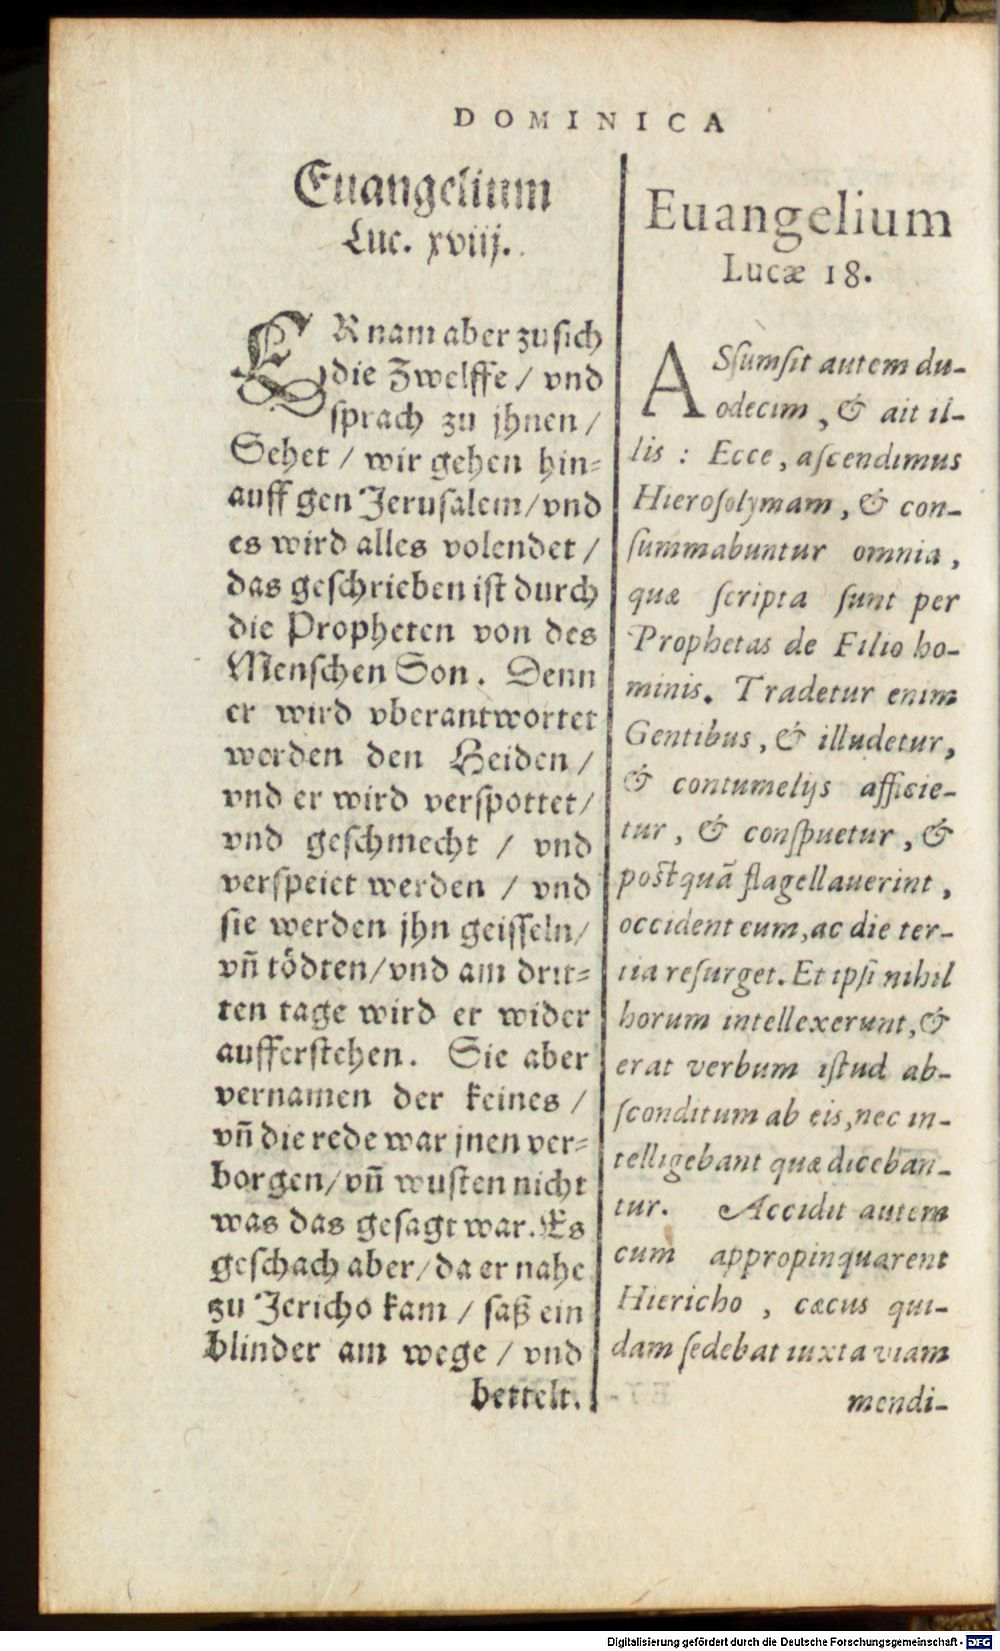 DOMINICA
Euangelium
Luc. xviij.
ER nam aber zu sich
die Zwelffe / vnd
sprach zu jhnen /
Sehet / wir gehen hin⸗
auff gen Jerusalem / vnd
es wird alles volendet /
das geschrieben ist durch
die Propheten von des
Menschen Son. Denn
er wird vberantwortet
werden den Heiden /
vnd er wird verspottet /
vnd geschmecht / vnd
verspeiet werden / vnd
sie werden jhn geisseln /
vñ tödten / vnd am drit⸗
ten tage wird er wider
aufferstehen. Sie aber
vernamen der keines /
vñ die rede war jnen ver⸗
borgen / vñ wusten nicht
was das gesagt war. Es
geschach aber / da er nahe
zu Jericho kam / saß ein
blinder am wege / vnd
bettelt.
Euangelium
Lucæ 18.
ASſumſit autem du-
odecim, & ait il-
lis : Ecce, aſcendimus
Hieroſolymam, & con-
ſummabuntur omnia,
quæ ſcripta ſunt per
Prophetas de Filio ho-
minis. Tradetur enim
Gentibus, & illudetur,
& contumelijs afficie-
tur, & conſpuetur, &
poſtquã flagellauerint,
occident eum, ac die ter-
tia reſurget. Et ipſi nihil
horum intellexerunt, &
erat verbum iſtud ab-
ſconditum ab eis, nec in-
telligebant quæ diceban-
tur. Accidit autem
cum appropinquarent
Hiericho, cæcus qui-
dam ſedebat iuxta viam
mendi-
Digitalisierung gefördert durch die Deutsche Forschungsgemeinschaft - DFG